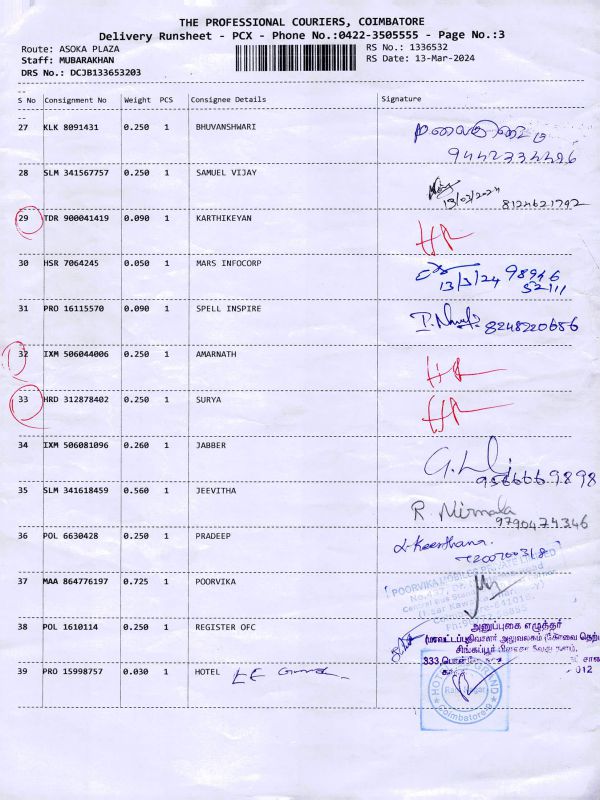 THE PROFESSIONAL COURIERS, COIMBATORE
Delivery Runsheet - PCX - Phone No.:0422-3505555 - Page No.:3
Route: ASOKA PLAZA RS No.: 1336532
Staff: MUBARAKHAN RS Date: 13-Mar-2024
DRS No.: DCJB133653203
S No Consignment No Weight PCS Consignee Details Signature
27 KLK 8091431 0.250 1 BHUVANSHWARI
9442334496
28 SLM 341567757 0.250 1 SAMUEL VIJAY
13/03/2024 8124621792
29 TDR 900041419 0.090 1 KARTHIKEYAN
30 HSR 7064245 0.050 1 MARS INFOCORP
13/3/24 98946
52111
31 PRO 16115570 0.090 1 SPELL INSPIRE
8248220656
32 IXM 506044006 0.250 1 AMARNATH
33 HRD 312878402 0.250 1 SURYA
34 IXM 506081096 0.260 1 JABBER
9566669898
35 SLM 341618459 0.560 1 JEEVITHA
R. Nirmala
9790474346
36 POL 6630428 0.250 1 PRADEEP
Keerthana
37 MAA 864776197 0.725 1 POORVIKA
POORVIKA MOBILES PRIVATE LIMITED
38 POL 1610114 0.250 1 REGISTER OFC
அனுப்புகை எழுத்தர்
(மாவட்டப்பதிவாளர் அலுவலகம் (கோவை தெற்
சிங்கப்பூர் பிளாசா
333
39 PRO 15998757 0.030 1 HOTEL
Coimbatore